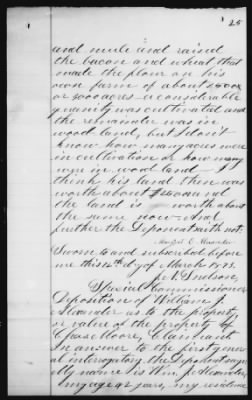 25
and mule and raised
the bacon and wheat that
made the flour on his
own farm of about
or 3000 acres a considerable
quantity was cultivated and
the remainder was in
wood land, but I don't
know how many acres were
in cultivation or how many
were in wood land I
think his land there was
worth about
the land is worth about
the same now And
further the Deponent saith not.
Alexander
Sworn to and subscribed before
me this 14th day of March 1873.
J. N. Snelson,
Special Commissioner
Deposition of William J.
Alexander as to the property
or value of the property of
Moore, Claimant
In answer to the first general
interrogatory the Deponent says
My name is Wm. J. Alexander,
my age years, my residence